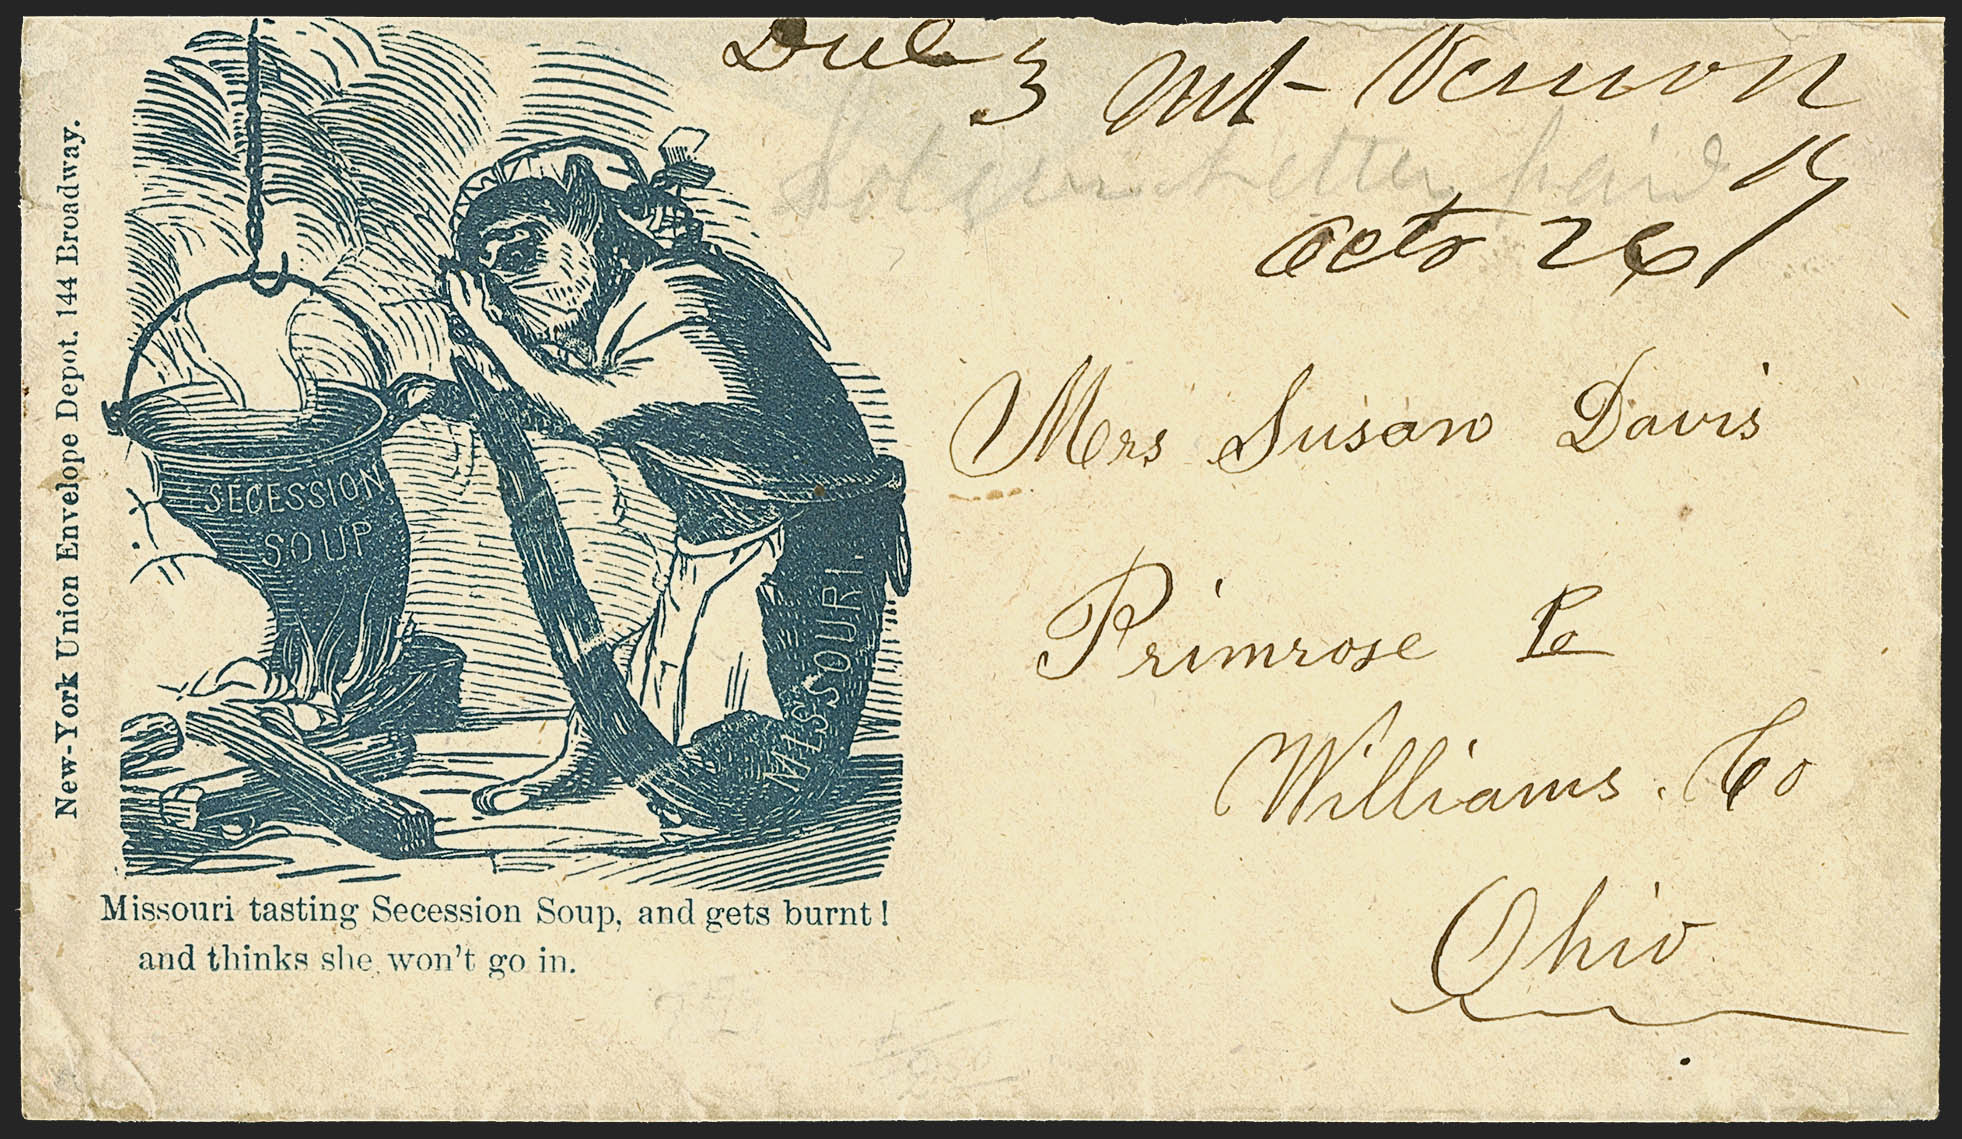 New-York Union Envelope Depot. 144 Broadway.
SECESSION
SOUP
MISSOURI.
Missouri tasting Secession Soup, and gets burnt!
and thinks she won't go in.
Due 3 Mt- Vernon
Letter paid
Oct 26
Mrs Susan Davis
Primrose Po
Williams. Co
Ohio